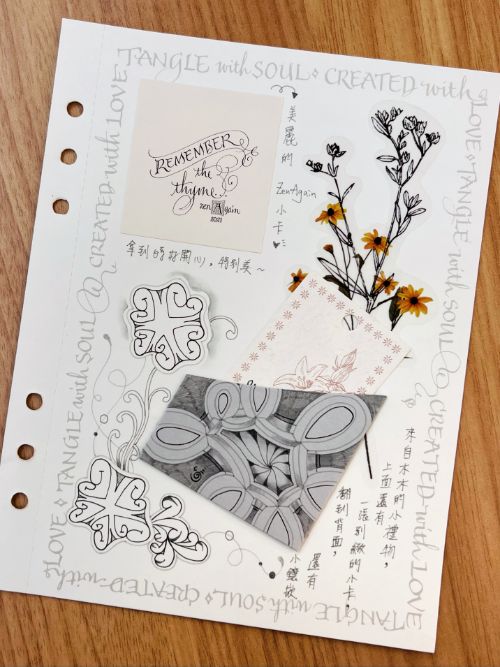 TANGLE with SOUL CREATED with
LOVE TANGLE with SOUL
CREATED with LOVE
TANGLE with SOUL CREATED with LOVE
LOVE TANGLE with SOUL CREATED with LOVE
REMEMBER
the
thyme!
zenAgain
2021
美麗的
ZenAgain
小卡
拿到時好開心，特別美～
來自木木的小禮物，
上面還有
一張別緻的小卡，
翻到背面，
還有
小鹽砍